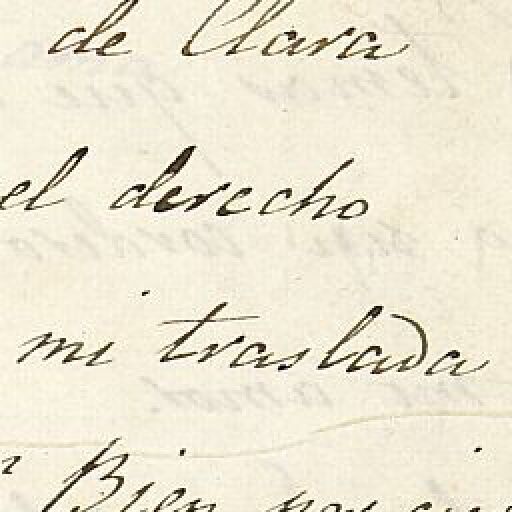 de Clara
el derecho
mi traslada
Bien